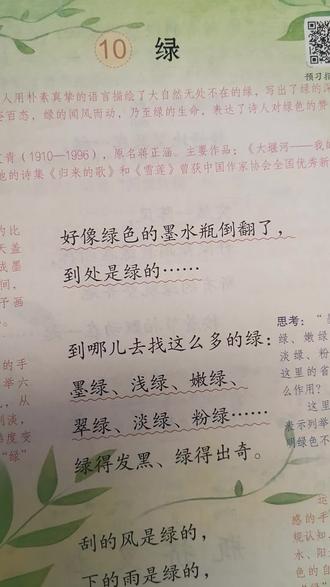 10 绿
预习指
人用朴素真挚的语言描绘了大自然无处不在的绿，写出了绿的深
百态，绿的闻风而动，乃至绿的生命，表达了诗人对绿色的赞
青（1910—1996），原名蒋正涵。主要作品：《大堰河——我的
他的诗集《归来的歌》和《雪莲》曾获中国作家协会全国优秀新
的比
盖
墨
间，
予画
好像绿色的墨水瓶倒翻了，
到处是绿的……
到哪儿去找这么多的绿：
墨绿、浅绿、嫩绿、
翠绿、淡绿、粉绿……
绿得发黑、绿得出奇。
的手
举六
，从
到淡，
度变
“绿”
思考：
绿、嫩绿
淡绿、粉
这里的省
么作用？
这里
表示列举
明绿色不
刮的风是绿的，
下的雨是绿的，
感的手
规认知，
水、阳
色的自